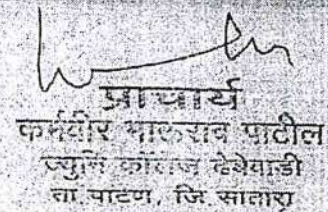 प्राचार्य
कर्मवीर भाऊराव पाटील
ज्युनि कॉलेज ढेबेवाडी
ता. पाटण, जि. सातारा